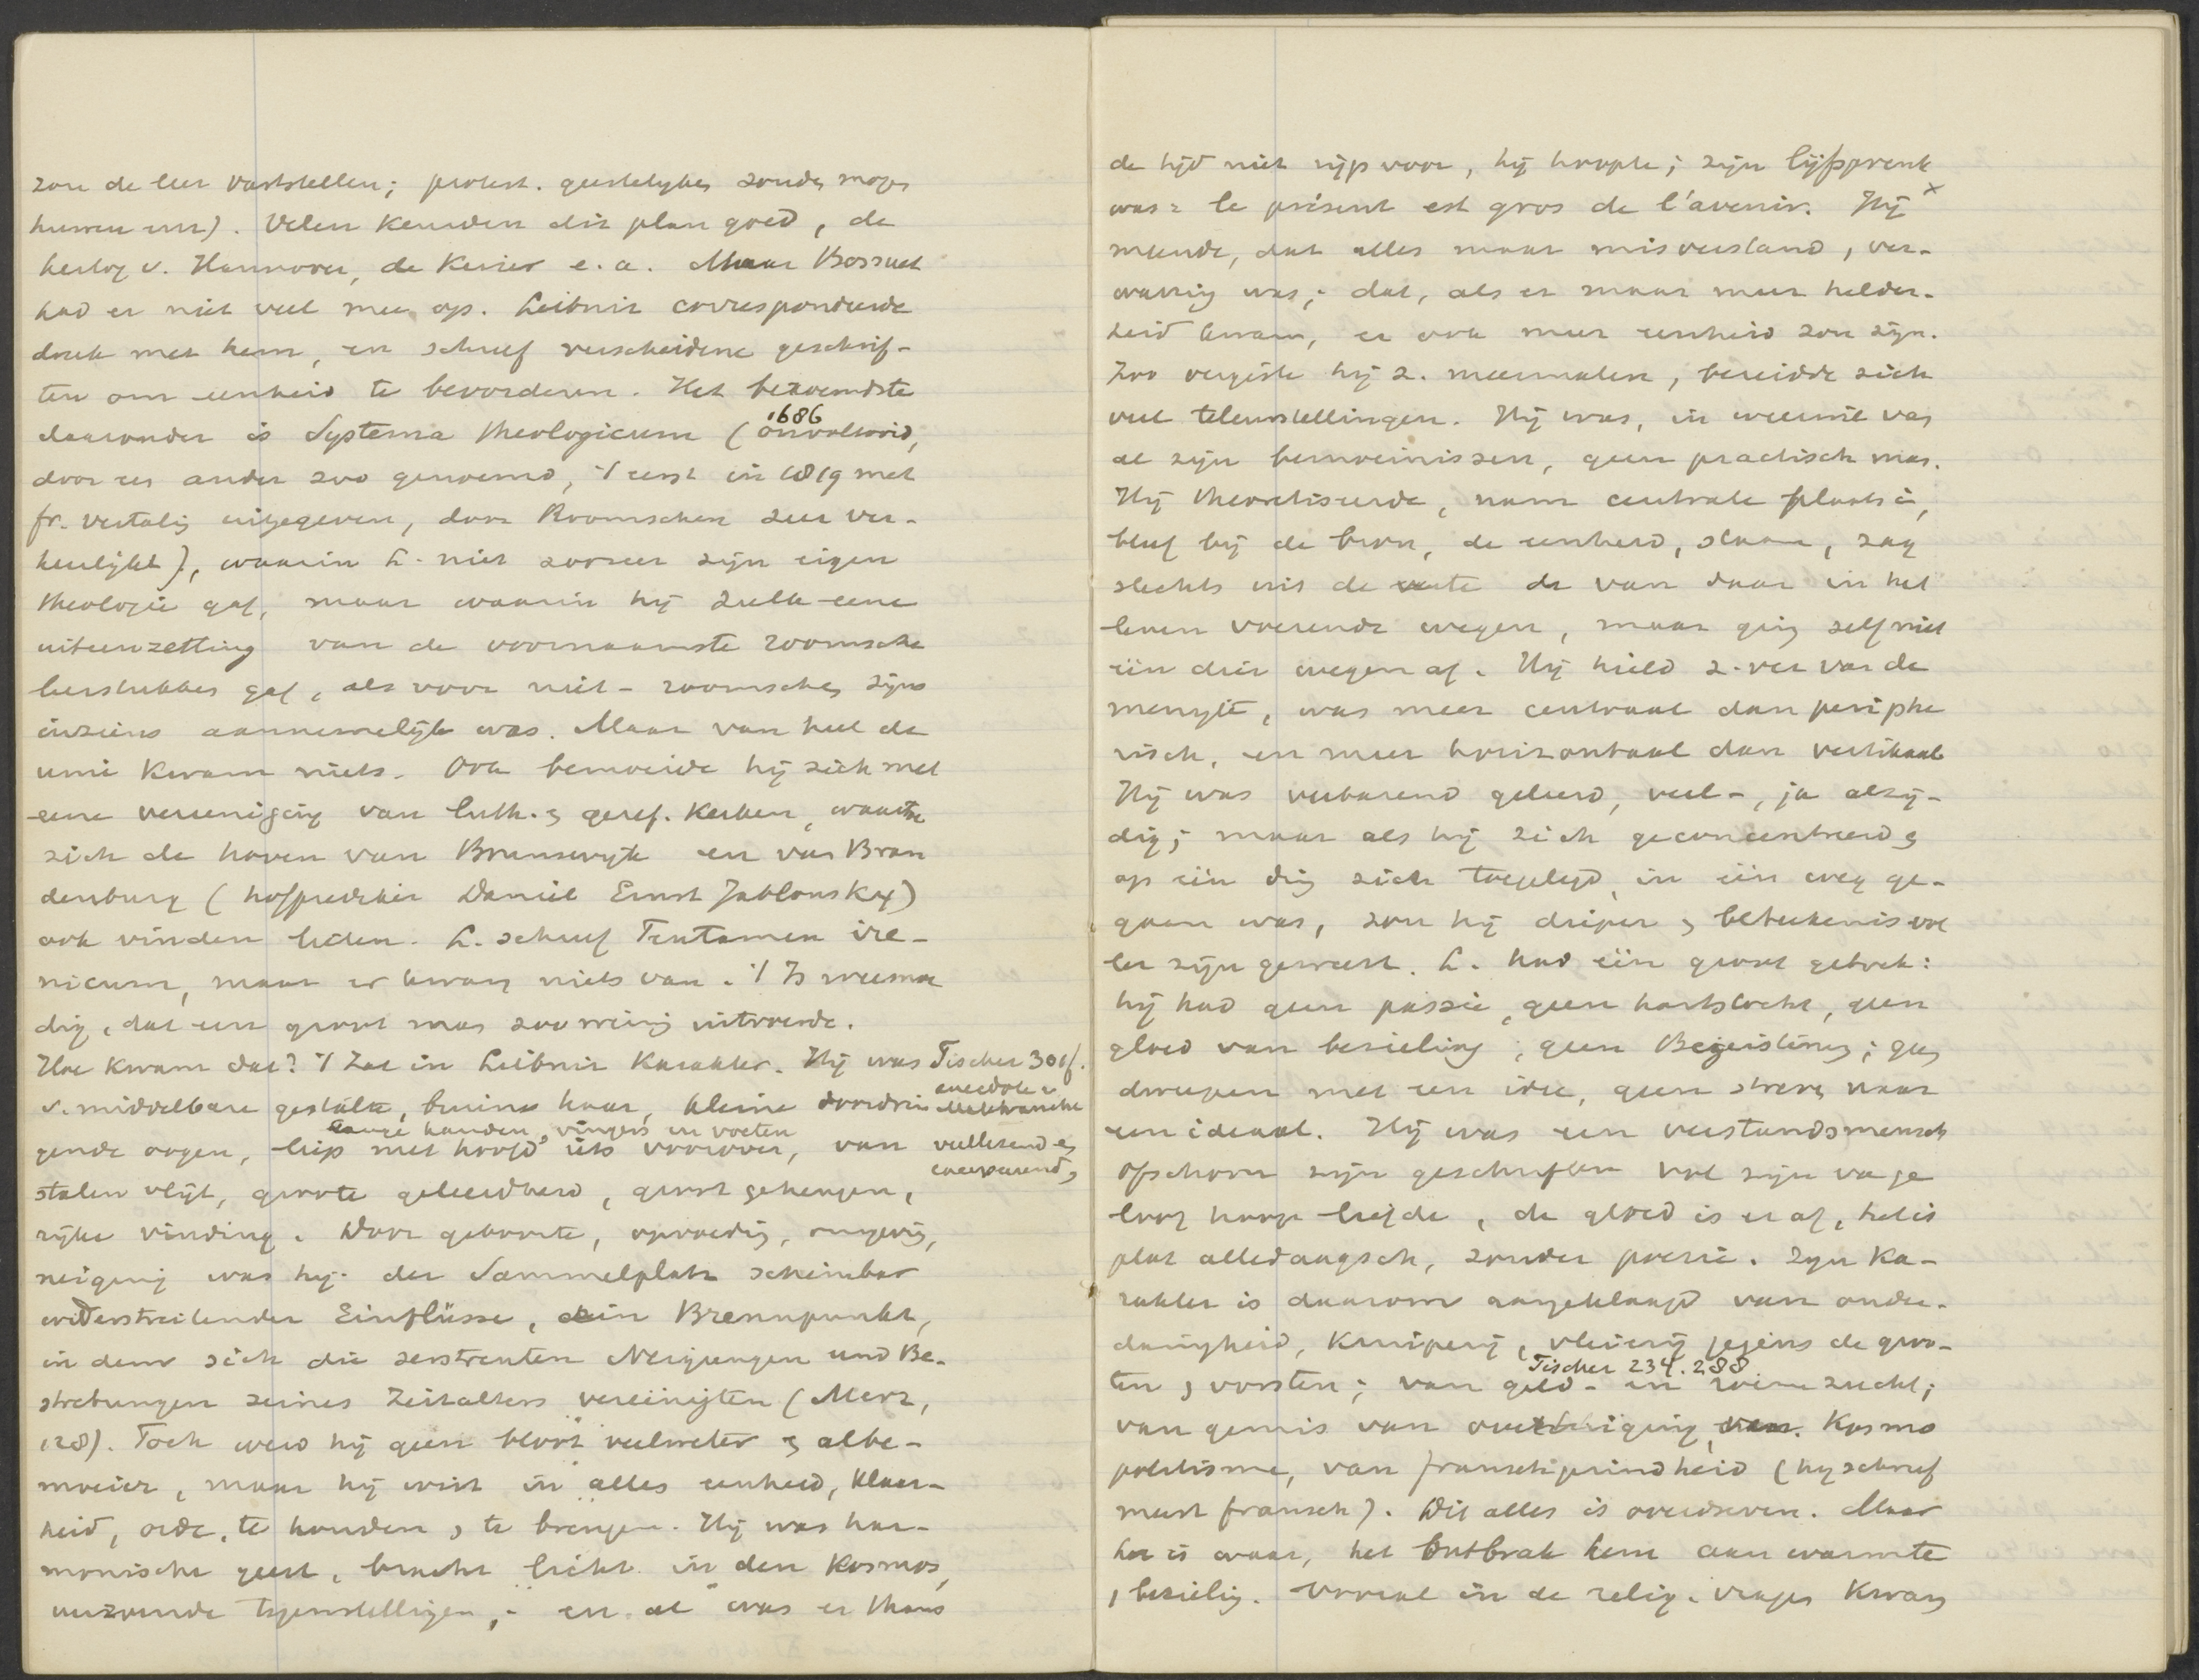 zou de leer vaststellen; protest. geestelyken zouden mogen
huwen enz). Velen keurden dit plan goed, de
hertog v. Hannover, de Keizer e.a. Maar Bossuet
had er niet veel mee op. Leibniz correspondeerde
druk met hem, en schreef verscheidene geschrif-
ten om eenheid te bevorderen. Het beroemdste
daaronder is Systema theologicum (1686 onvoltooid,
door een ander zoo genoemd, 't eerst in 1819 met
fr. vertaling uitgegeven, door Roomschen zeer ver-
heerlijkt), waarin L. niet zoozeer zijn eigen
theologie gaf, maar waarin hij zulk eene
uiteenzetting van de voornaamste roomsche
leerstukken gaf, als voor niet-roomschen zijns
inziens aannemelijk was. Maar van heel de
unie kwam niets. Ook bemoeide hij zich met
eene vereeniging van luth. en geref. kerken, waartoe
zich de hoven van Brunswyk en van Bran
denburg (hofprediker Daniel Ernst Jablonsky)
ook vinden lieten. L. schreef Tentamen ire-
nicum, maar er kwam niets van. 't Is weemoe
dig, dat een groot man zoo weinig uitvoerde.
Hoe kwam dat? 't Zat in Leibniz karakter. Hij was
v. middelbare gestalte, bruine haar, kleine doordrin
gende oogen, lange handen, vingers en voeten, liep met hoofd iets voorover, van
stalen vlijt, groote geleerdheid, groot geheugen,
rijke vinding. Door geboorte, opvoeding, omgeving,
neiging was hij: der Sammelplatz scheinbar
widerstreitender Einflüsse, ein Brennpunkt,
in dem sich die zerstreuten Neigungen und Be-
strebungen seines Zeitalters vereinigten (Merz,
128). Toch werd hij geen bloot veelweter en albe-
moeier, maar hij wist in alles eenheid, klaar-
heid, orde, te houden en te brengen. Hij was har-
monische geest, bracht licht in den kosmos,
verzoende tegenstellingen; en al was er thans
Tischer 30 f.
anecdote v.
Malebranche
veellezend en
excerpeerend,
de tijd niet rijp voor, hij hoopte; zijn lijfspreuk
was: le présent est gros de l'avenir. Hij x
meende, dat alles maar misverstand, ver-
warring was; dat, als er maar meer helder-
heid kwam, er ook meer eenheid zou zijn.
Zoo vergiste hij z. meermalen, bereidde zich
veel teleurstellingen. Hij was, in weerwil van
al zijn bemoeinissen, geen practisch man.
Hij theoretiseerde, nam centrale plaats in,
bleef bij de bron, de eenheid, staan, zag
slechts uit de verte de van daar in het
leven voerende wegen, maar ging zelf niet
één dier wegen af. Hij hield z. ver van de
menigte, was meer centraal dan periphe
risch, en meer horizontaal dan vertikaal
Hij was verbazend geleerd, veel-, ja alzij-
dig; maar als hij zich geconcentreerd en
op één ding zich toegelegd, in één weg ge-
gaan was, zou hij dieper en beteekenisvol
ler zijn geweest. L. had één groot gebrek:
hij had geen passie, geen hartstocht, geen
gloed van bezieling, geen Begeisterung; geen
dweepen met een idee, geen streven naar
een ideaal. Hij was een verstandsmensch
ofschoon zijn geschriften vol zijn van ge
loof hoop liefde, de gloed is er af, het is
plat alledaagsch, zonder poezie. Zijn ka-
rakter is daarom aangeklaagd van onder-
danigheid, kruiperij, vleierij jegens de groo-
ten en vorsten; van geld- en roemzucht; Tischer 234. 288
van gemis van overtuiging, van kosmo
politisme, van franschgezindheid (hij schreef
meest fransch). Dit alles is overdreven. Maar
het is waar, het ontbrak hem aan warmte
en bezieling. Vooral in de relig. vragen kwam